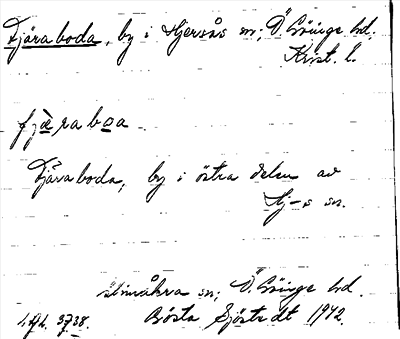 Fjäraboda, by i Hjersås sn; Ö. Göinge hd.
Krist. l.
fjæraboa
Fjäraboda, by i östra delen av
Hj-s sn.
sn; Ö. Göinge hd.
Gösta Sjöstedt 1942.
3738.